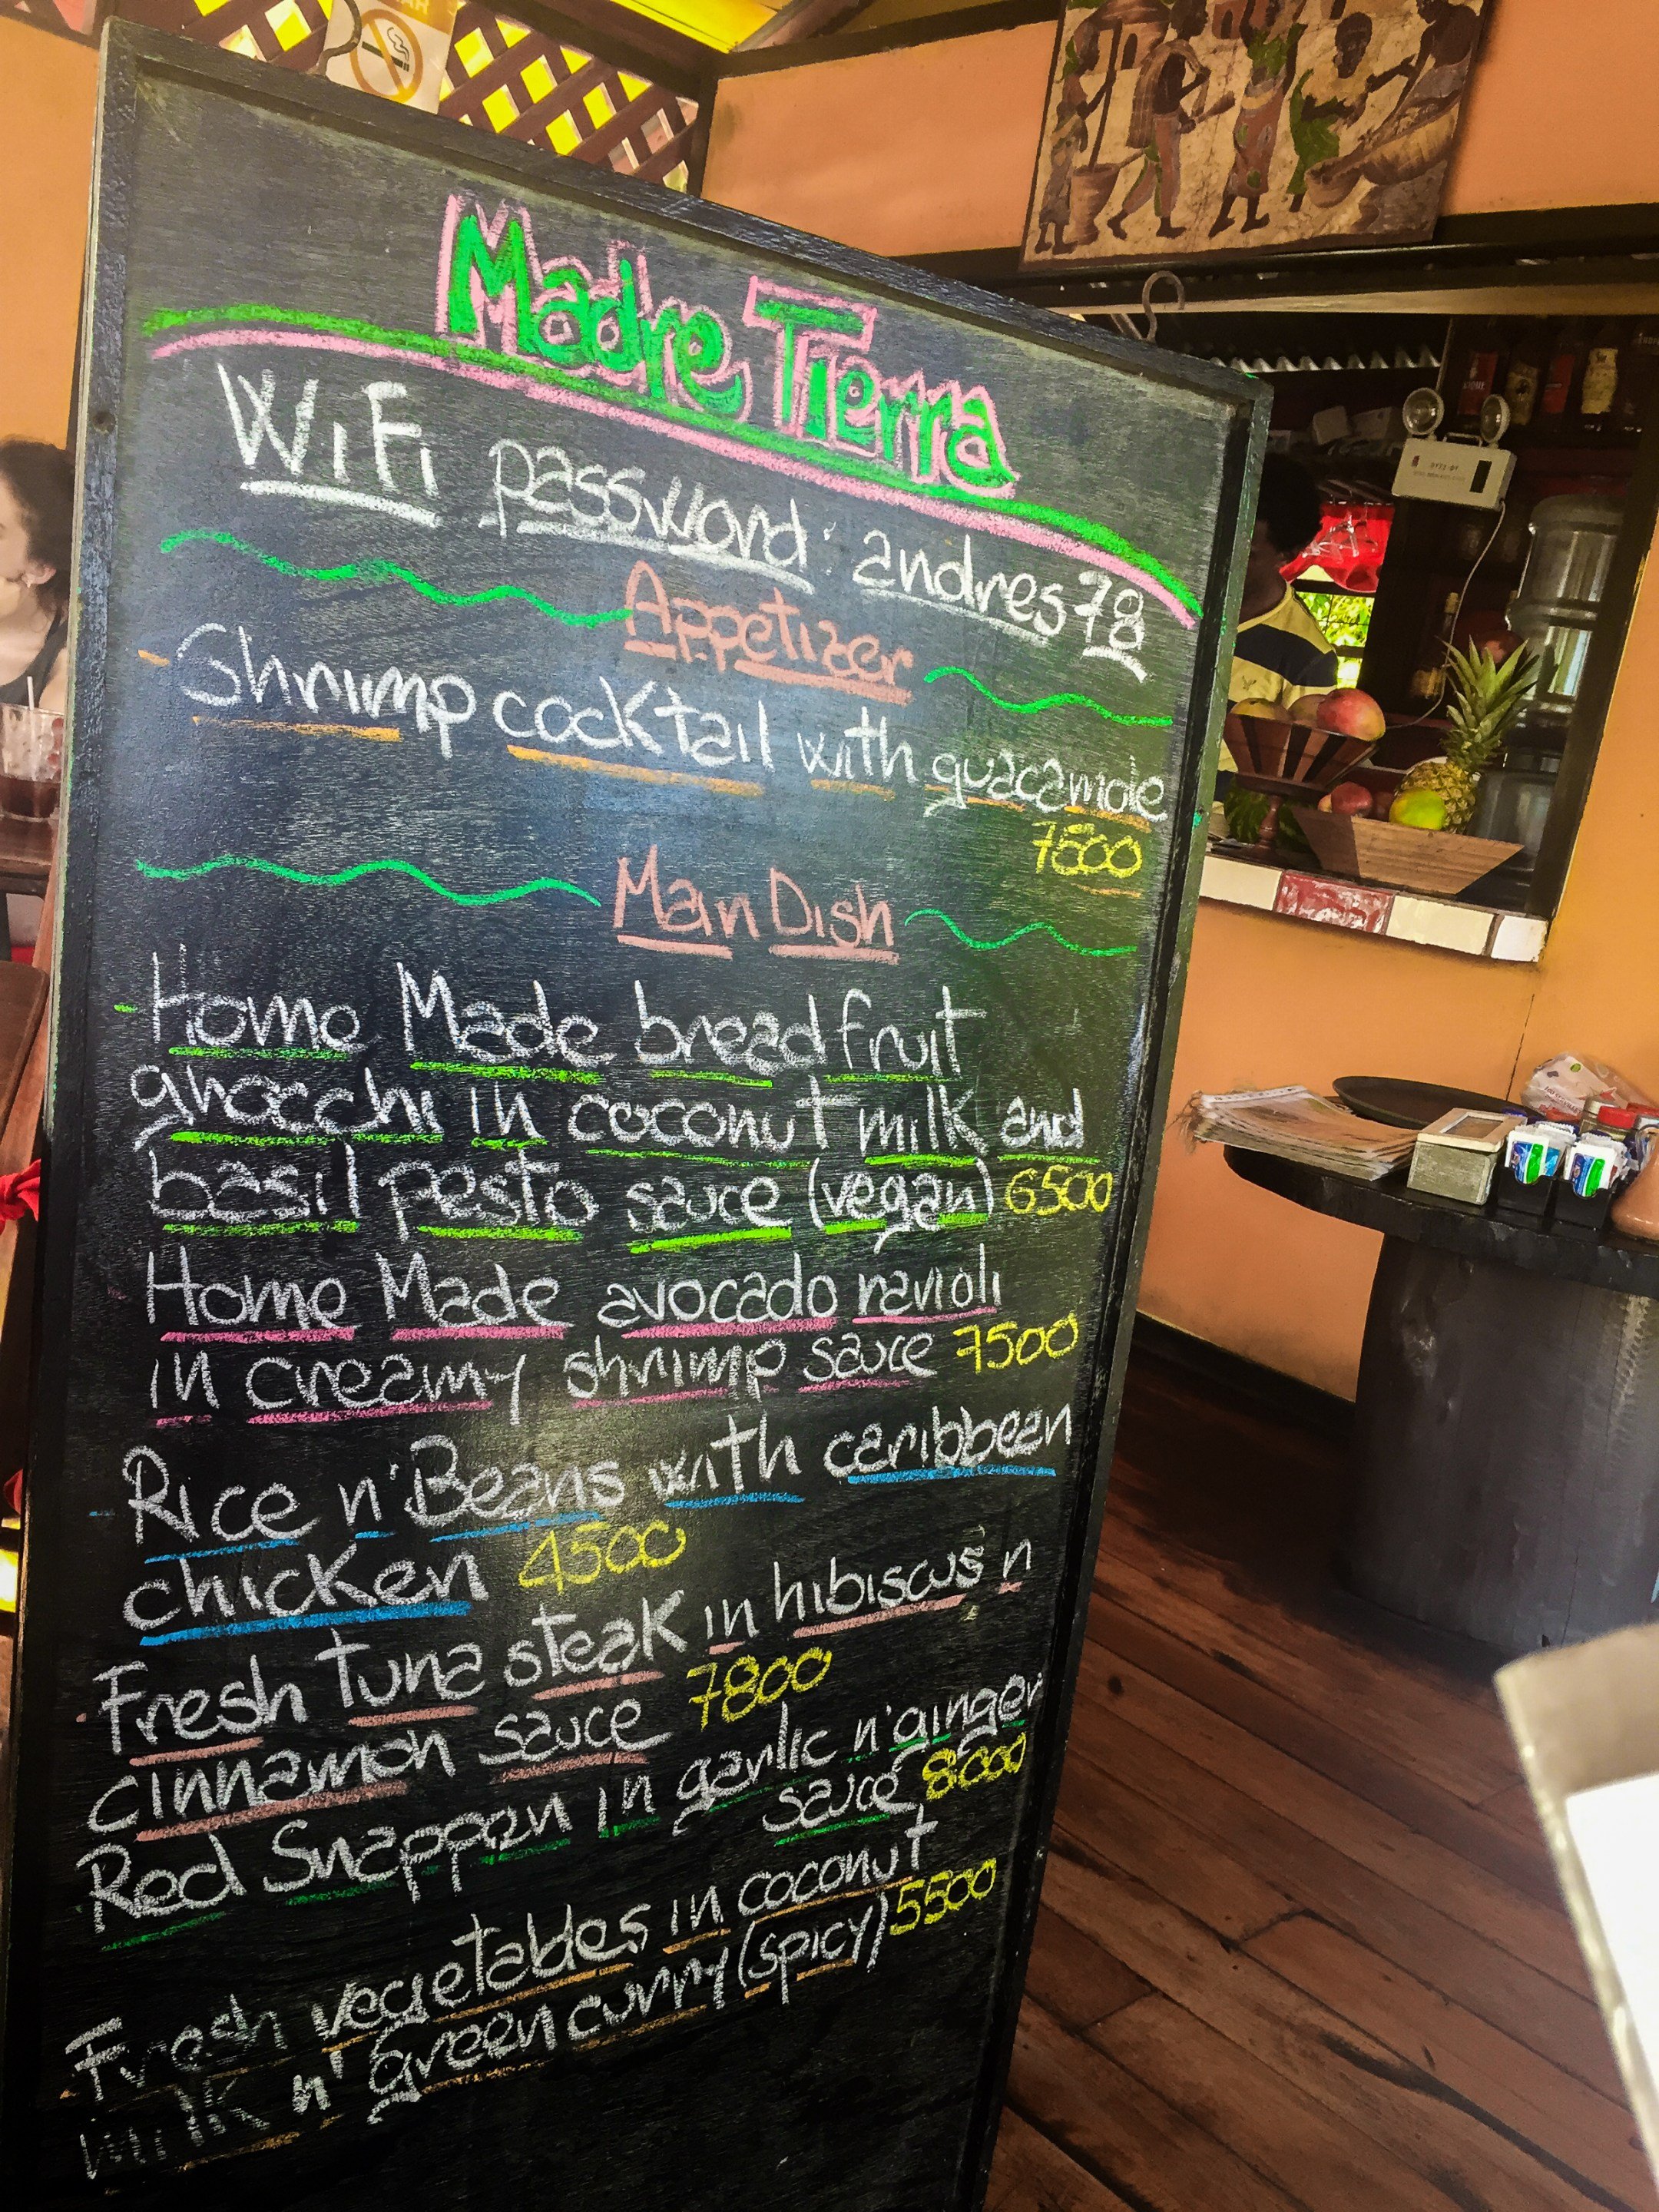 Madre Tierra
WiFi password: andres78
Appetizer
- Shrimp cocktail with guacamole
7800
Main Dish
- Home Made breadfruit
gnocchi in coconut milk and
basil pesto sauce (vegan) 6500
- Home Made avocado ravioli
in creamy shrimp sauce 7500
- Rice n' Beans with caribbean
chicken 4500
- Fresh tuna steak in hibiscus n
cinnamon sauce 7800
Red Snapper in garlic n' ginger
sauce 8000
- Fresh vegetables in coconut
milk n' green curry (spicy) 5500